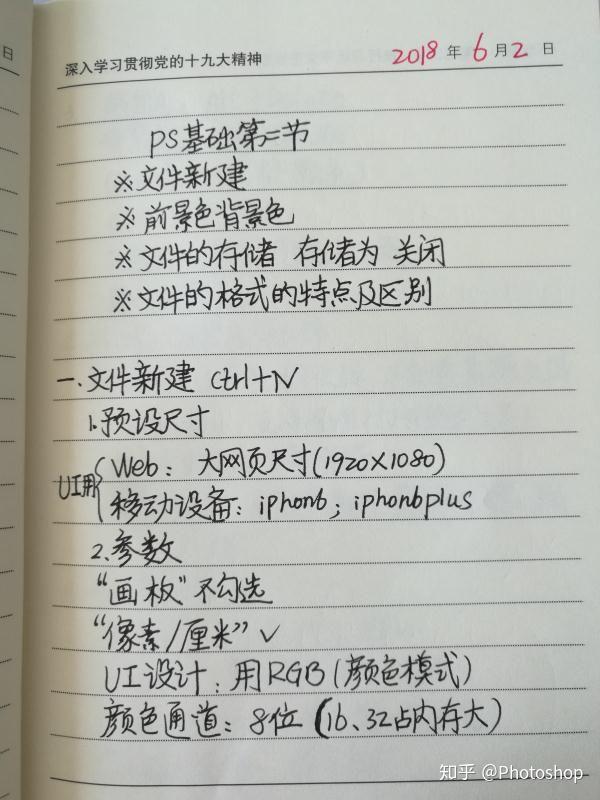 日
深入学习贯彻党的十九大精神
2018 年 6 月 2 日
PS基础第二节
※文件新建
※前景色背景色
※文件的存储 存储为 关闭
※文件的格式的特点及区别
一.文件新建 Ctrl+N
1.预设尺寸
UI用
Web: 大网页尺寸(1920×1080)
移动设备: iphon6; iphon6plus
2.参数
“画板”不勾选
“像素/厘米”✓
UI设计: 用RGB(颜色模式)
颜色通道: 8位 (16、32占内存大)
日
知乎 @Photoshop